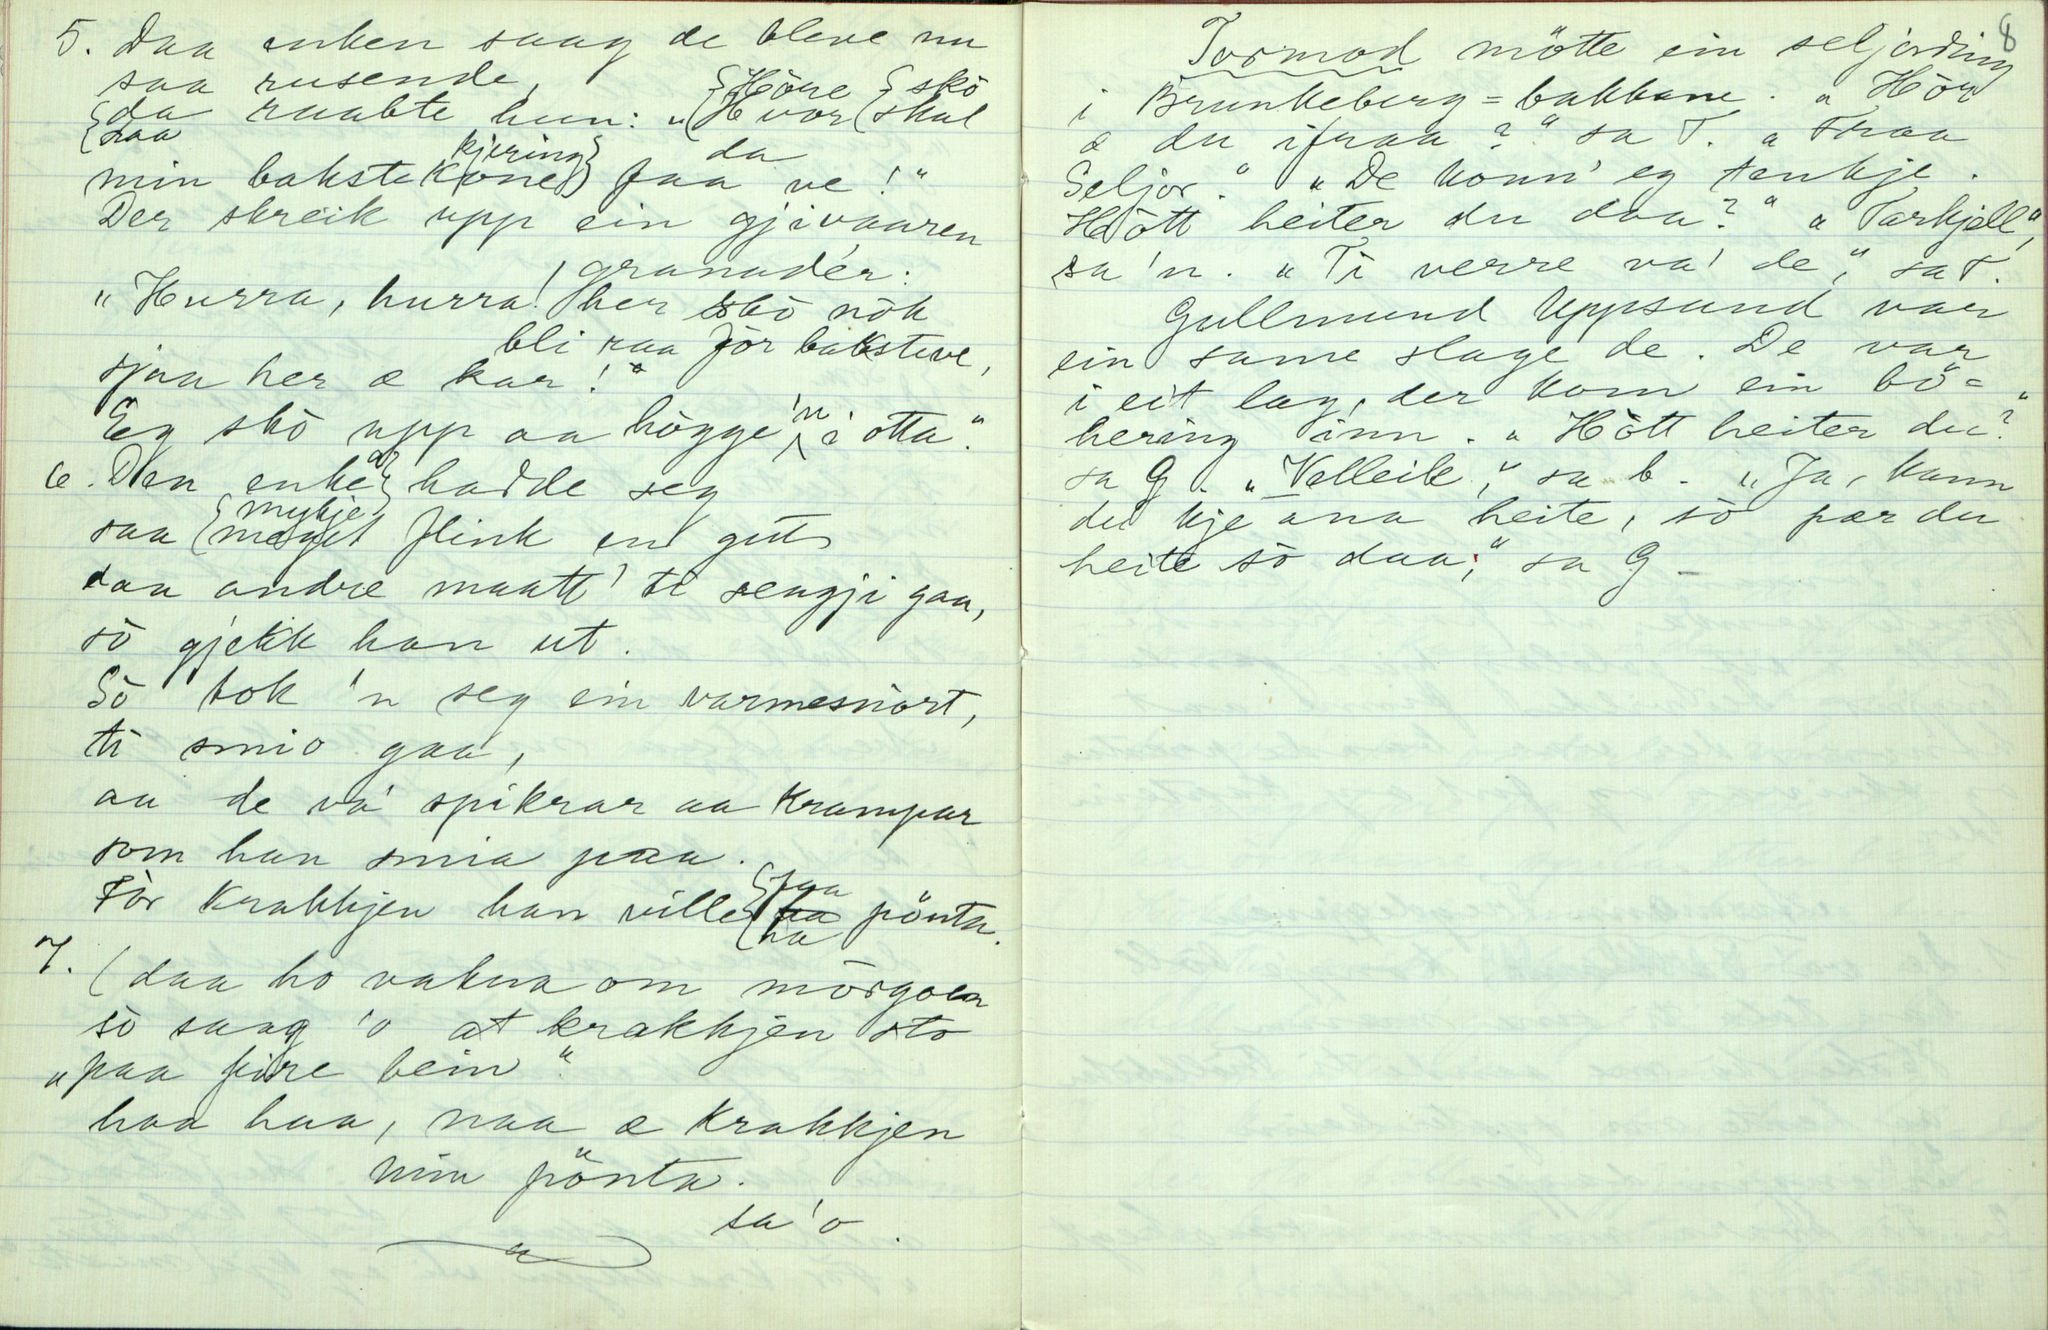 5. Daa enken saag de bleve nu
saa rusende,
{da {Høre {skö
{saa raabte hun: „{Hvor {skal
kjering} da
min bakstekone} faa ve!“
Der skreik upp ein gjivaaren
granadér:
„Hurra, hurra! her skö nök
bli raa för baksteve,
sjaa her æ kar!“
Eg skö upp aa högge 'n i otta.“
6. Den enke} hadde seg
{mykje
saa {meget flink en gut
daa andre maatt' ti sengji gaa,
sö gjekk han ut.
Sö tok 'n seg ein varmesnört,
ti smio gaa,
aa de va' spikrar aa krampar
som han smia paa.
För krakkjen han ville {faa
{ha pönta.
7. (daa ho vakna om mörgoen
sö saag 'o at krakkjen sto
„paa fire bein“
haa haa, naa æ krakkjen
min pönta.
sa 'o.
8
Tormod mötte ein seljording
i Brunkeberg=bakkane. „Hör
æ du ifraa?“ sa T. „Fraa
Seljor.“ „De konn' eg tenkje.
Hött heiter du daa?“ „Tarkjell“,
sa 'n. „Ti verre va' de,“ sa T.
Gullmund Uppsund var
ein same slage de. De var
i eit lag, der kom ein bö=
hering inn. „Hött heiter du?“
sa G. „Velleik,“ sa b. „Ja, kann
du kje ana heite, sö fær du
heite sö daa,“ sa G